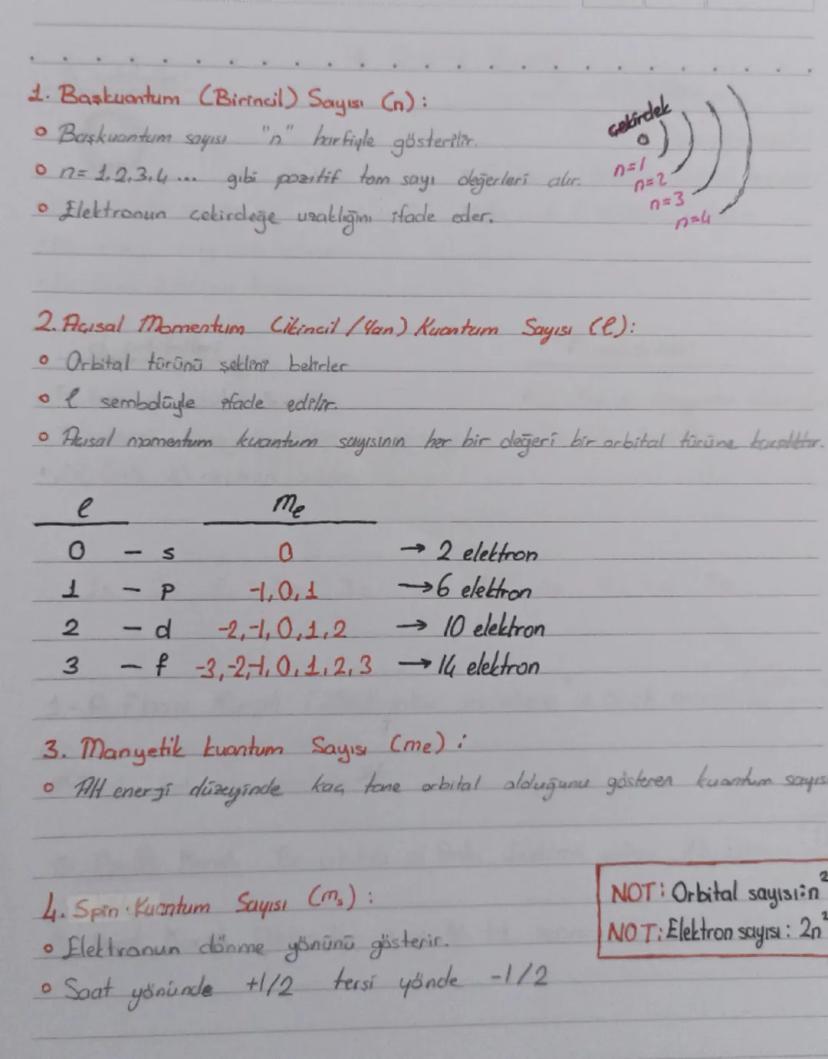 1. Başkuantum (Birincil) Sayısı (n):
o Başkuantum sayısı "n" harfiyle gösterilir.
o n= 1,2,3,4 ... gibi pozitif tam sayı değerleri alır.
o Elektronun çekirdeğe uzaklığını ifade eder.
çekirdek
n=1
n=2
n=3
n=4
2. Açısal Momentum (İkincil / Yan) Kuantum Sayısı (ℓ):
o Orbital türünü şeklini belirler
o ℓ sembolüyle ifade edilir.
o Açısal momentum kuantum sayısının her bir değeri bir orbital türüne karşılıktır.
ℓ mℓ
0 - s 0 → 2 elektron
1 - p -1,0,1 → 6 elektron
2 - d -2,-1,0,1,2 → 10 elektron
3 - f -3,-2,-1,0,1,2,3 → 14 elektron
3. Manyetik kuantum Sayısı (mℓ) :
o Alt enerji düzeyinde kaç tane orbital olduğunu gösteren kuantum sayıs
4. Spin Kuantum Sayısı (ms) :
o Elektronun dönme yönünü gösterir.
o Saat yönünde +1/2 tersi yönde -1/2
NOT: Orbital sayısı: n²
NOT: Elektron sayısı: 2n²